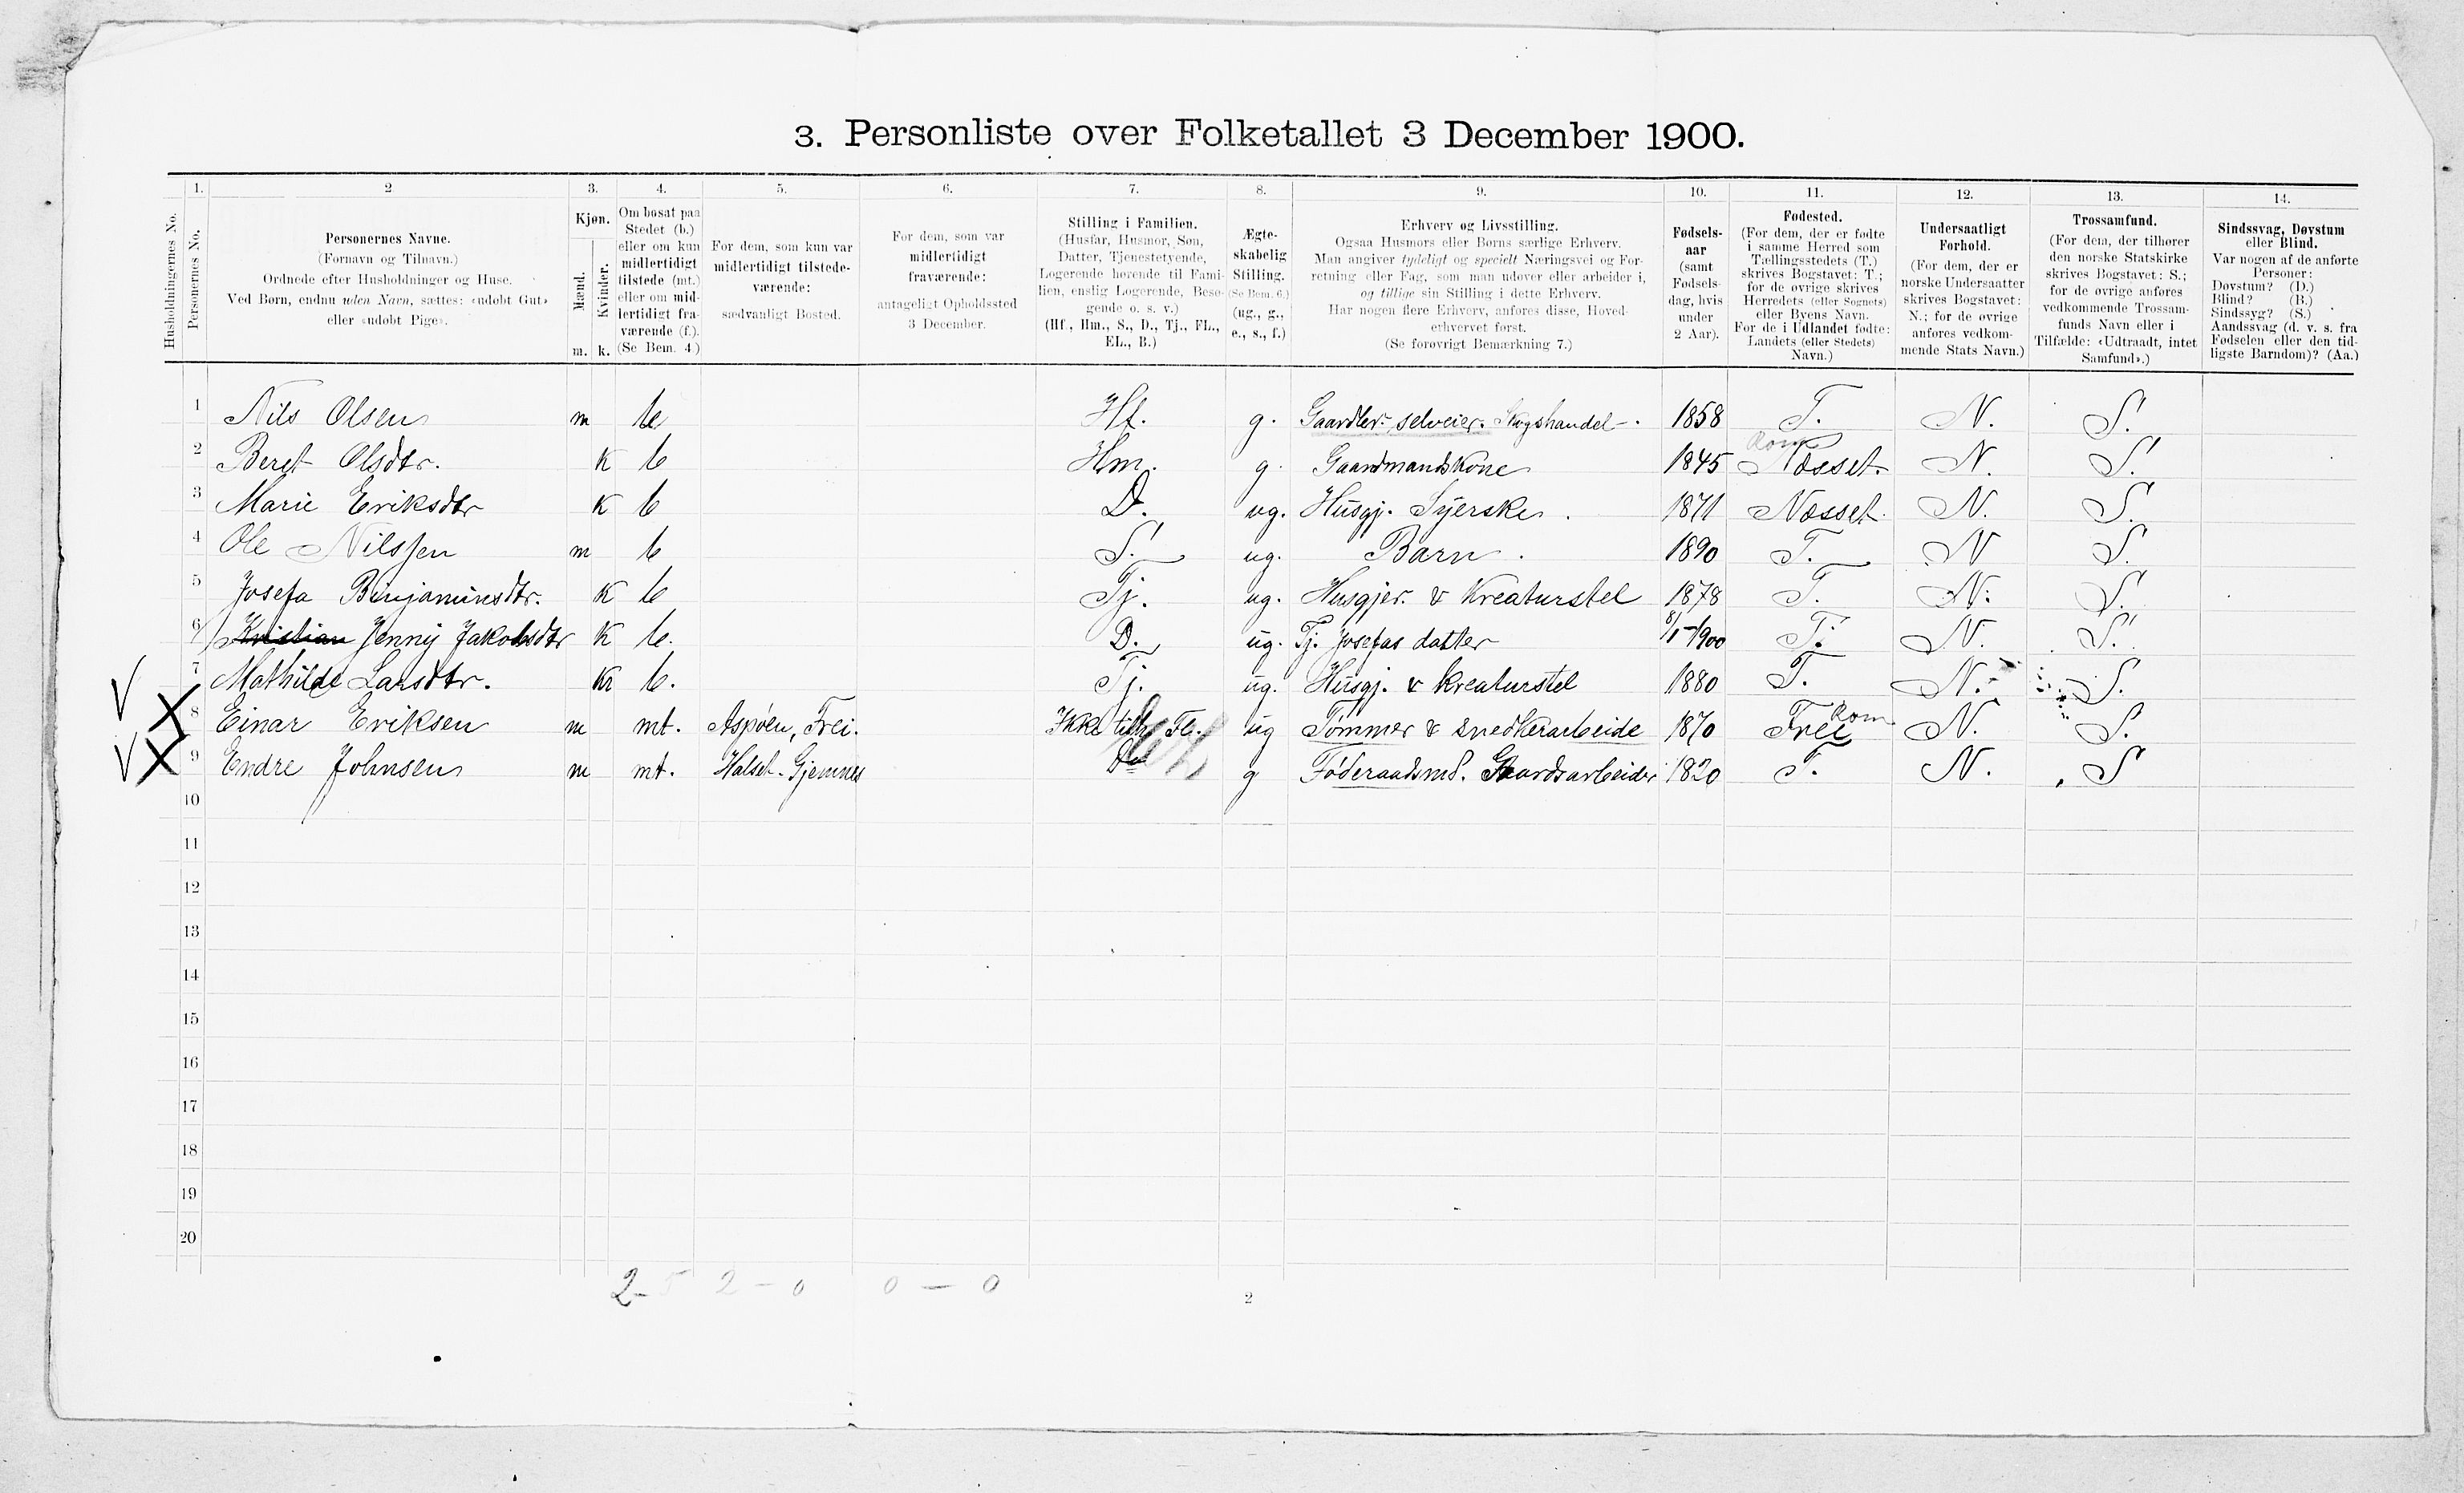 3. Personliste over Folketallet 3 December 1900.
1. 2 3. 4. 5. 6. 7. 8. 9. 10. 11. 12. 13. 14.
Husholdningernes No.
Personernes No.
Personernes Navne.
(Fornavn og Tilnavn.)
Ordnede efter Husholdninger og Huse.
Ved Børn, endnu uden Navn, sættes: «udøbt Gut»
eller «udøbt Pige».
Kjøn.
Mænd.
Kvinder.
m. k.
Om bosat paa
Stedet (b.)
eller om kun
midlertidigt
tilstede (mt.)
eller om mid-
lertidigt fra-
værende (f.).
(Se Bem. 4.)
For dem, som kun var
midlertidigt tilstede-
værende:
sædvanligt Bosted.
For dem, som var
midlertidigt
fraværende:
antageligt Opholdssted
3 December.
Stilling i Familien.
(Husfar, Husmor, Søn,
Datter, Tjenestetyende,
Logerende hørende til Fami-
lien, enslig Logerende, Besø-
gende o. s. v.)
(Hf., Hm., S., D., Tj., FL.,
EL., B.)
Ægte-
skabelig
Stilling.
(Se Bem. 6.)
(ug., g.,
e., s., f.)
Erhverv og Livsstilling.
Ogsaa Husmors eller Børns særlige Erhverv.
Man angiver tydeligt og specielt Næringsvei og For-
retning eller Fag, som man udøver eller arbeider i,
og tillige sin Stilling i dette Erhverv.
Har nogen flere Erhverv, anføres disse, Hoved-
erhvervet først.
(Se forøvrigt Bemærkning 7.)
Fødsels-
aar
(samt
Fødsels-
dag, hvis
under
2 Aar).
Fødested.
(For dem, der er fødte
i samme Herred som
Tællingsstedets (T.)
skrives Bogstavet: T.;
for de øvrige skrives
Herredets (eller Sognets)
eller Byens Navn.
For de i Udlandet fødte:
Landets (eller Stedets)
Navn.)
Undersaatligt
Forhold.
(For dem, der er
norske Undersaatter
skrives Bogstavet:
N.; for de øvrige
anføres vedkom-
mende Stats Navn.)
Trossamfund.
(For dem, der tilhører
den norske Statskirke
skrives Bogstavet: S.;
for de øvrige anføres
vedkommende Trossam-
funds Navn eller i
Tilfælde: «Udtraadt, intet
Samfund».)
Sindssvag, Døvstum
eller Blind.
Var nogen af de anførte
Personer:
Døvstum? (D.)
Blind? (B.)
Sindssyg? (S.)
Aandssvag (d. v. s. fra
Fødselen eller den tid-
ligste Barndom)? (Aa.)
1 Nils Olsen m b Hf. g. Gaardbr. selveier. Skogshandel. 1858 T. N. S.
Rom
2 Beret Olsdtr. K b Hm. g. Gaardmandskone 1845 Nesset. N. S.
3 Marie Eriksdtr K b D. ug. Husgj. Syerske. 1871 Nesset. N. S.
4 Ole Nilssen m b S. ug. Barn. 1890 T. N S.
5 Josefa Binjaminsdtr. K b Tj. ug. Husgjer. & Kreaturstel 1878 T. N. S.
6 Kristian Jenny Jakobsdtr K b. D. ug. Tj. Josefas datter 8/1-1900 T. N. S.
7 Mathilde Larsdtr. K b. Tj. ug. Husgj. & Kreaturstel 1880 T. N. S.
Rom
8 Einar Eriksen m mt. Aspøen, Frei. Ikke tilh. Fl. ug Tømmer & snedkerarbeide 1870 Frei N. S.
9 Endre Johnsen m mt. Halset. Gjemnes g Føderaadsmd. Gaardsarbeider 1820 T. N. S
10
11
12
13
14
15
16
17
18
19
20
2-5 2-0 0-0
2